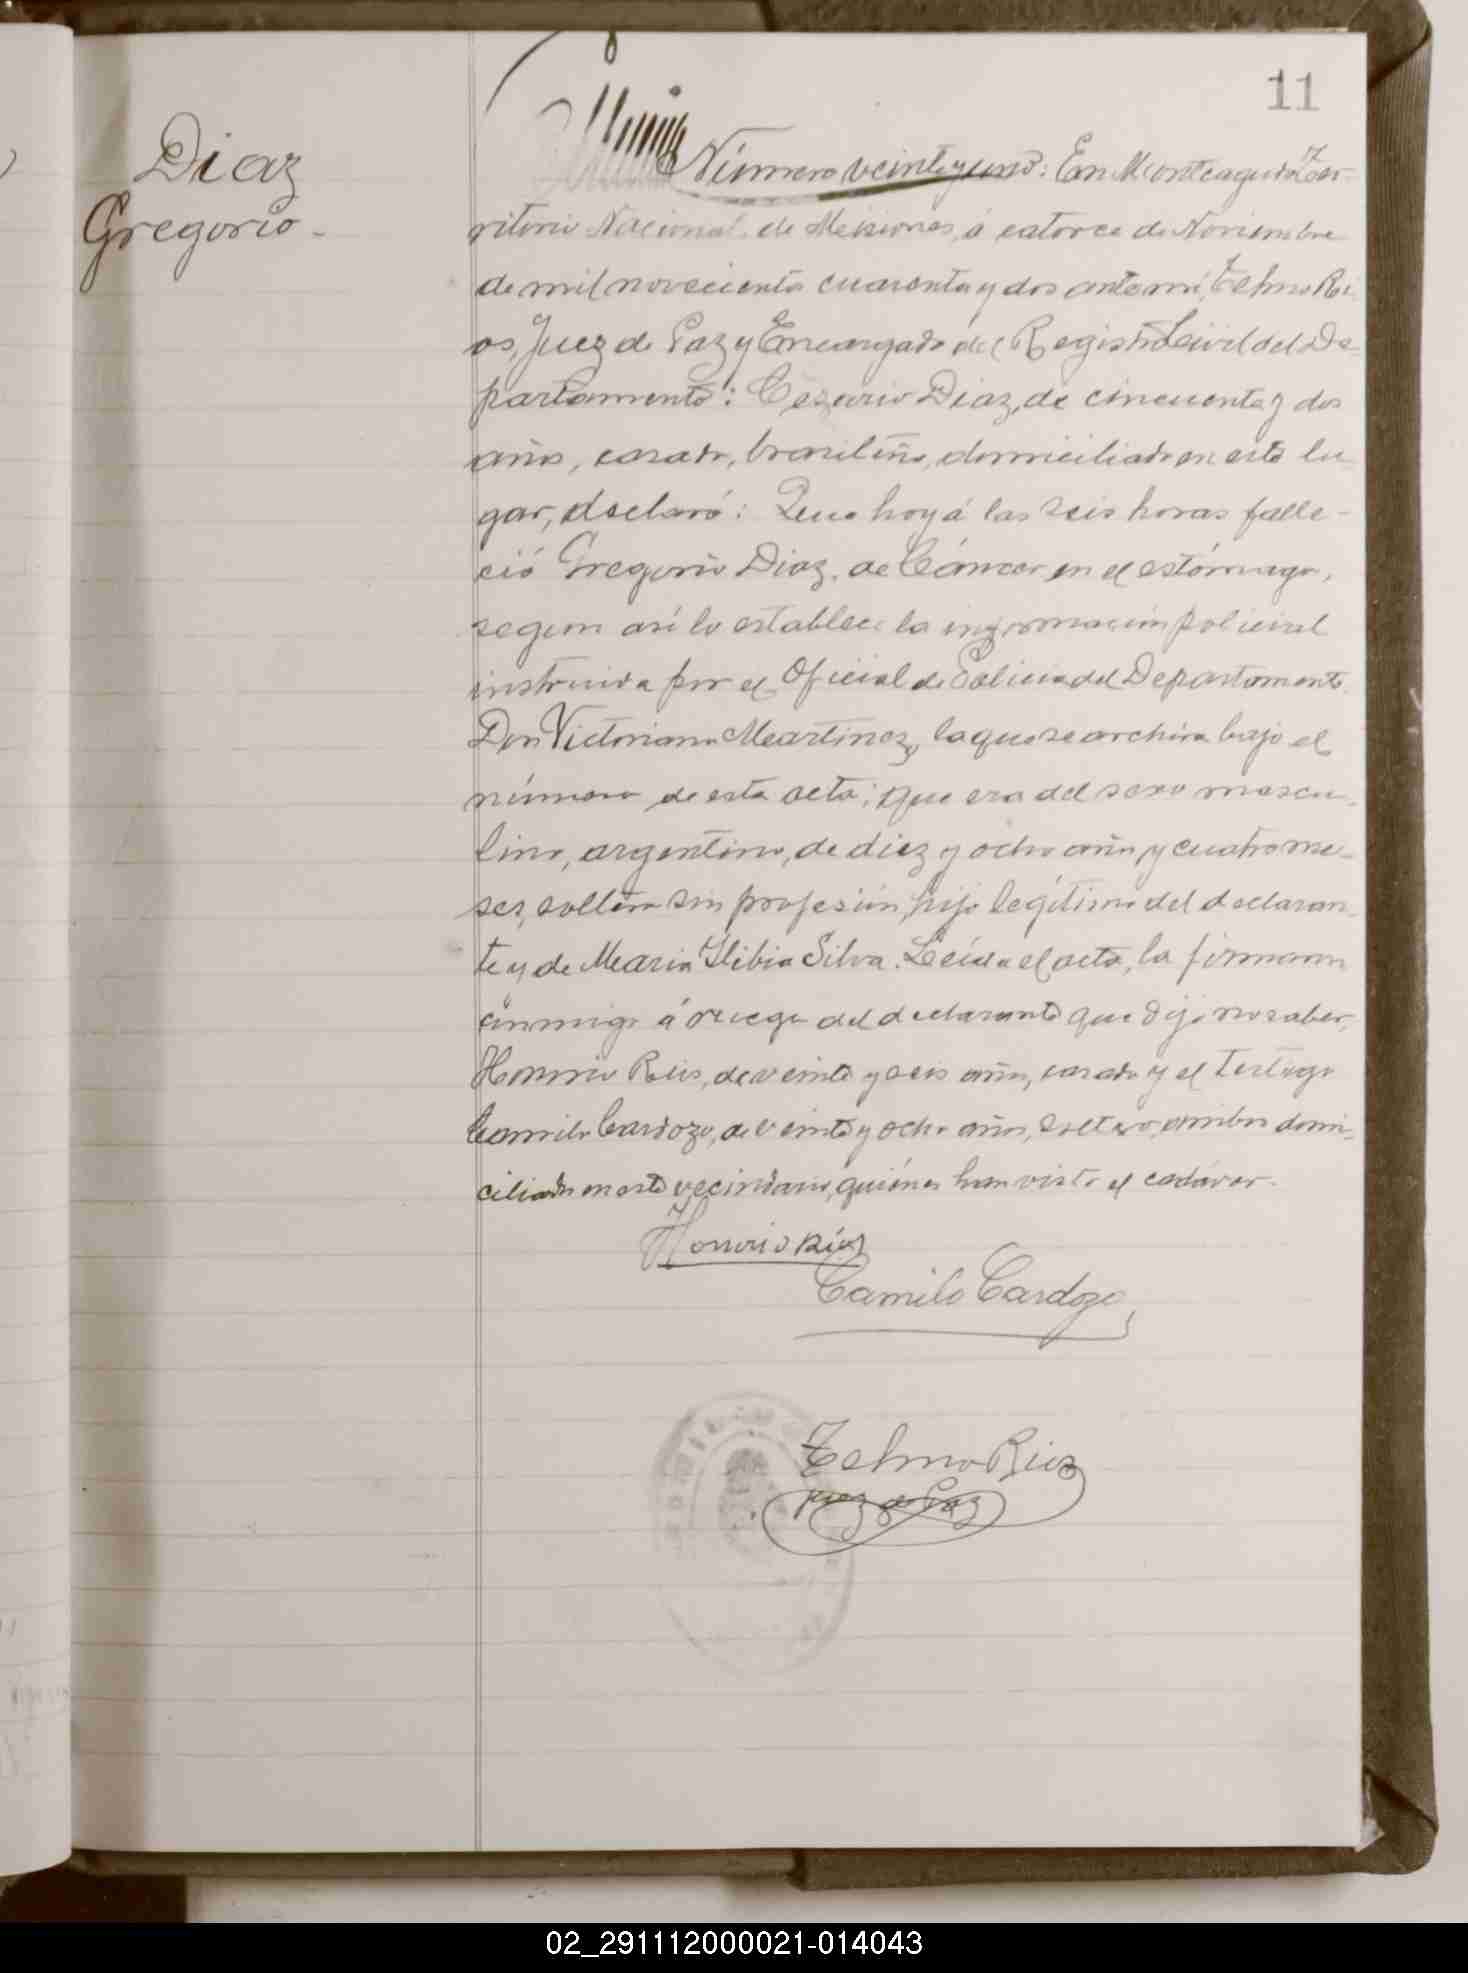 11
Diaz
Gregorio -
Número veinte y uno: En Monteagudo, Ter-
ritorio Nacional de Misiones, á catorce de Noviembre
de mil novecientos cuarenta y dos ante mí, Telmo Rí-
os, Juez de Paz y Encargado del Registro Civil del De-
partamento: Cezario Diaz, de cincuenta y dos
años, casado, brasileño, domiciliado en este lu-
gar, declaró: Que hoy á las seis horas falle-
ció Gregorio Diaz, de Cáncer en el estómago,
segun así lo establece la información policial
instruida por el Oficial de Policia del Departamento
Don Victoriano Martinez, la que se archiva bajo el
número de esta acta; que era del sexo mascu-
lino, argentino, de diez y ocho años y cuatro me-
ses, soltero sin profesión, hijo legítimo del declaran-
te y de Maria Ilibia Silva. Leída el acta, la firmaron
conmigo á ruego del declarante que dijo no saber,
Honorio Rios, de veinte y seis años, casado y el testigo
Camilo Cardozo, de veinte y ocho años, soltero, ambos domi-
ciliados en este vecindario, quiénes han visto el cadáver.
Honorio Ríos
Camilo Cardozo
Telmo Rios
Juez de Paz
02_291112000021-014043